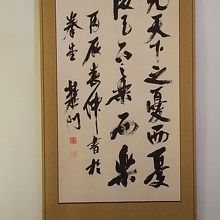 先天下之憂而憂
後天下之樂而樂
丙辰春仲書於
拳堂 龍門